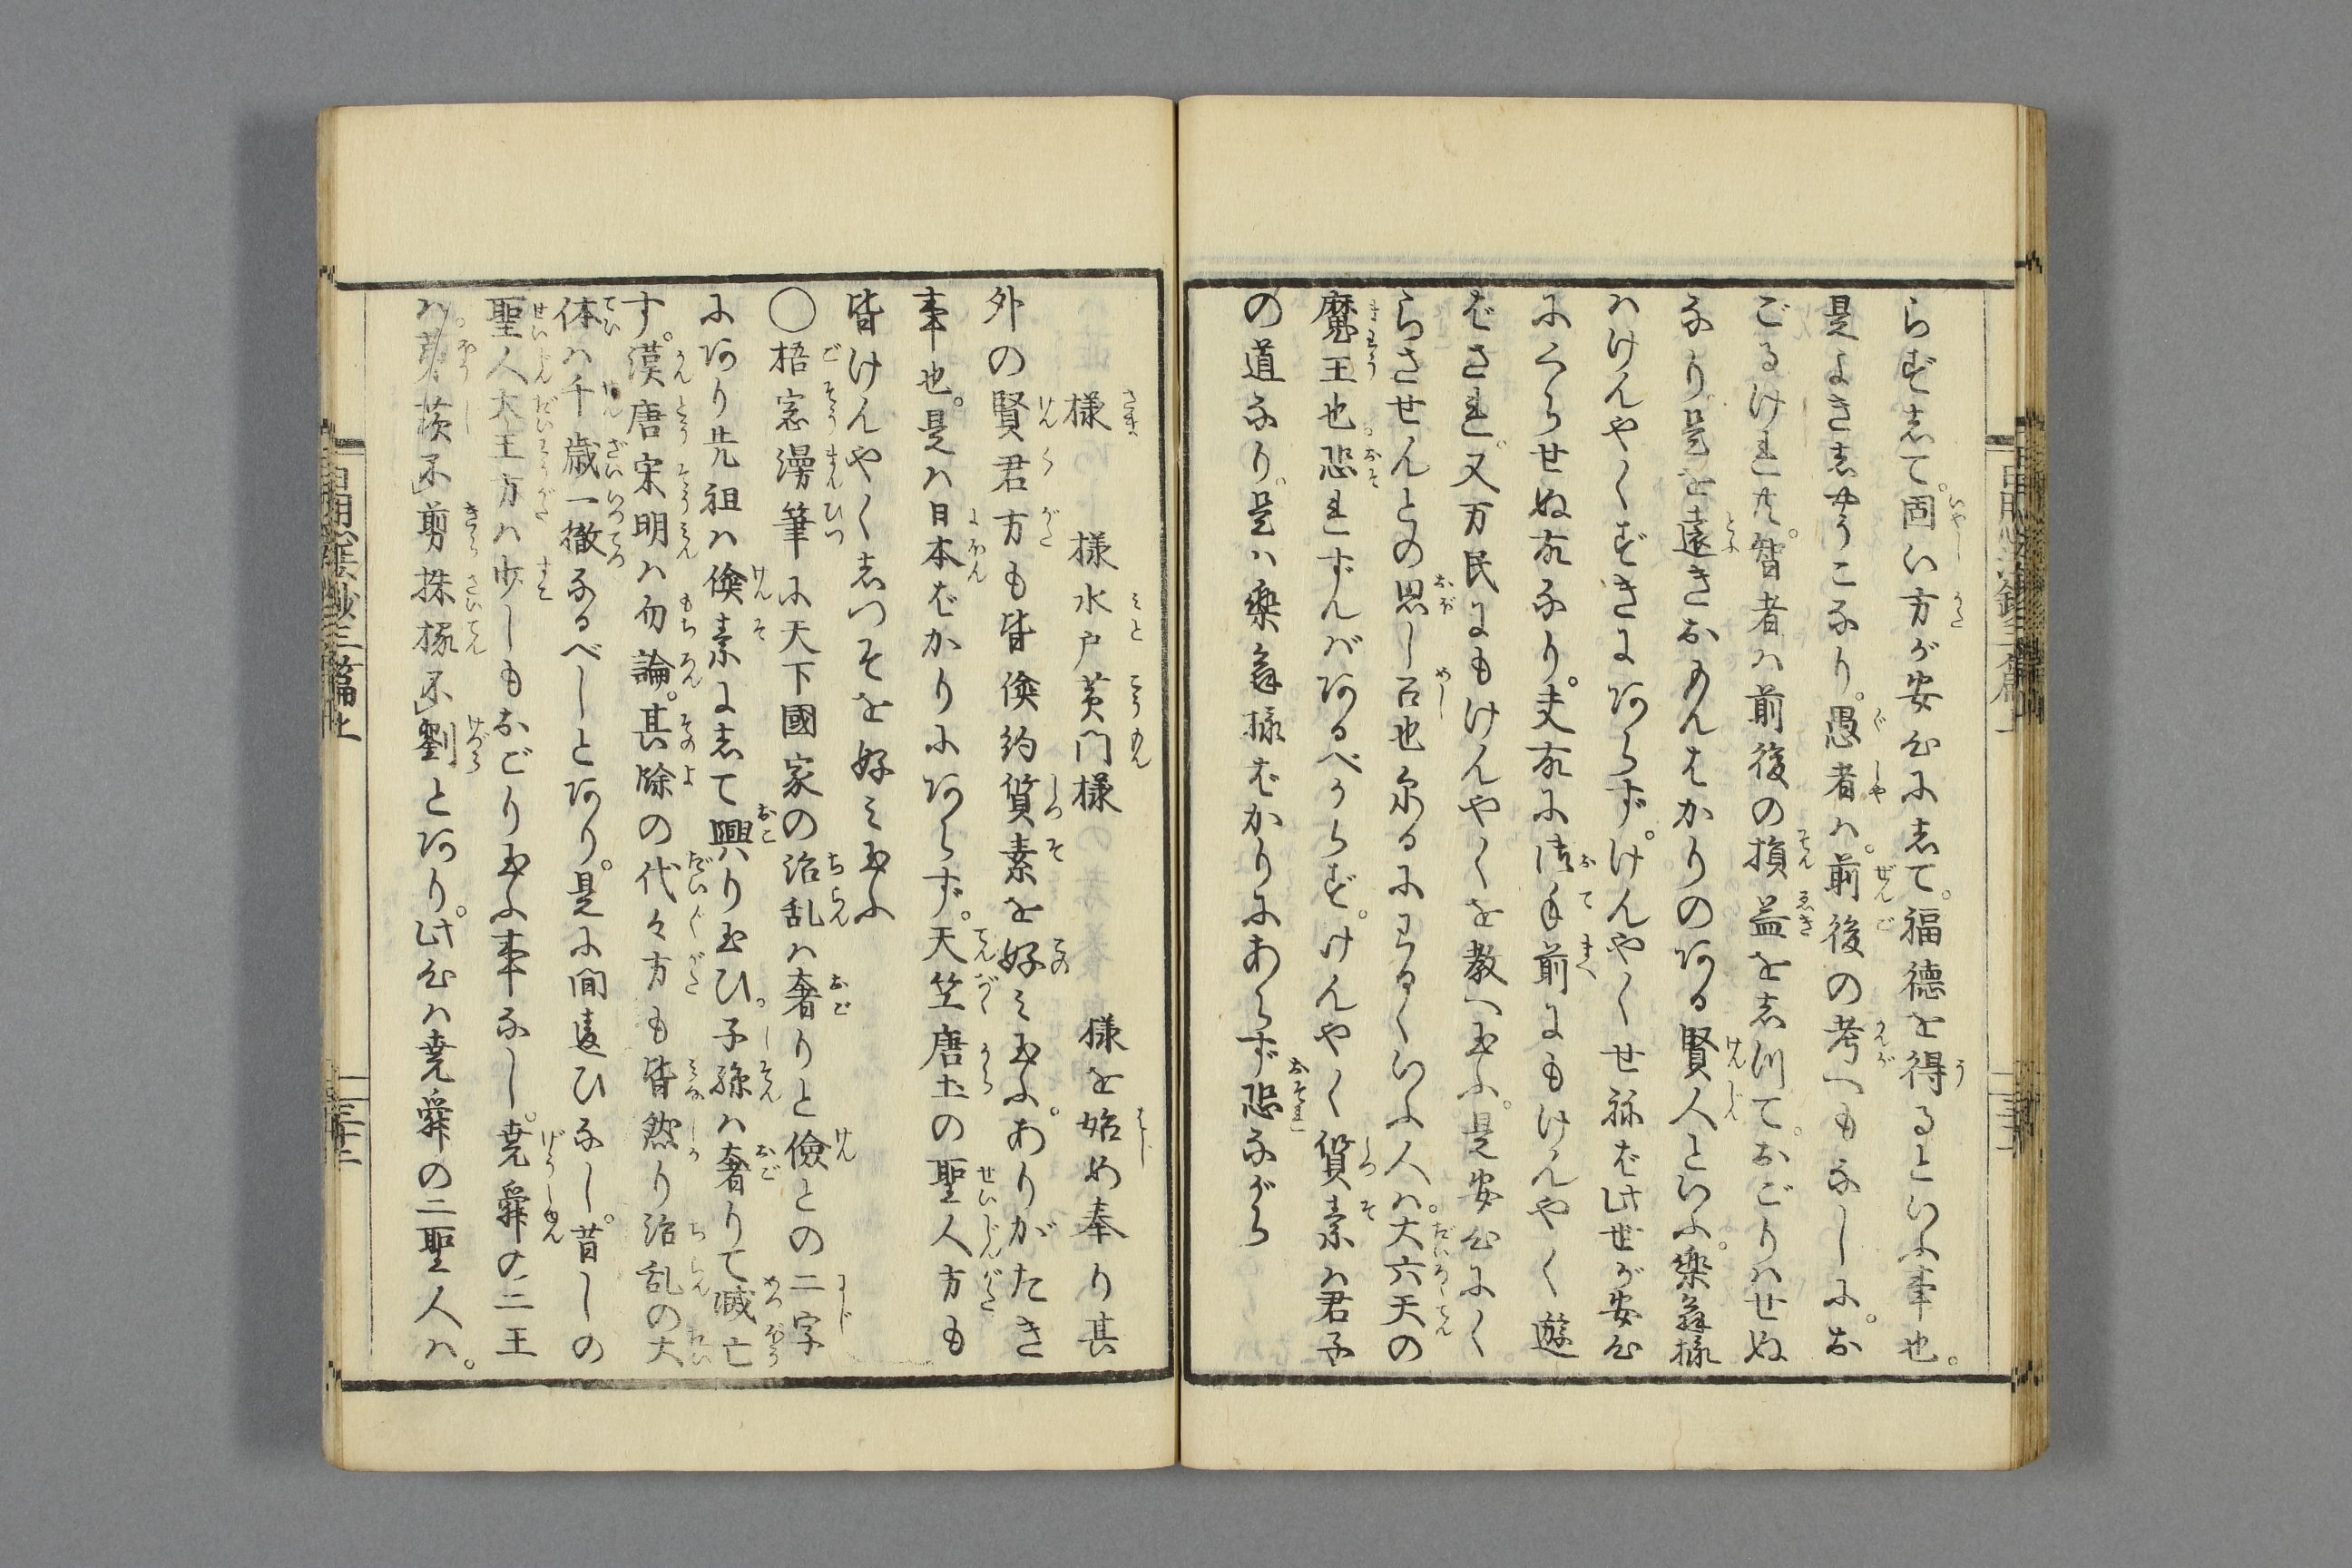 らず志て。固い方が安心に志て。福徳を得るといふ事也。
是よき志ゆうこなり。愚者ハ。前後の考へもなしに。お
ごるけれ共。智者ハ前後の損益を志つて。おごりハせぬ
なり。是を遠きおもんはかりのある賢人といふ。楽翁様
ハけんやくずきにあらず。けんやくせねば此世が安心
にくらせぬ故なり。夫故に御手前にもけんやく遊
ばされ。又万民にもけんやくを教へ玉ふ。是安心にく
らさせんとの思し召也尓るにわるくいふ人ハ。大六天の
魔王也。恐れずんバあるべからず。けんやく質素ハ君子
の道なり。是ハ楽翁様ばかりにあらず恐ながら
様 様水戸黄門様 様を始め奉り其
外の賢君方も皆倹約質素を好ミ玉ふ。ありがたき
事也。是ハ日本ばかりにあらず。天竺唐土の聖人方も
皆けんやく志つそを好ミ玉ふ
〇梧窓漫筆に天下國家の治乱ハ奢りと儉との二字
にあり先祖ハ倹素に志て興り玉ひ。子孫ハ奢りて滅亡
す。漢唐宋明ハ勿論。其除の代々方も皆然り治乱の大
体ハ千歳一徹なるべしとあり。是に間違ひなし。昔しの
聖人大王方ハ少しもおごり玉ふ事なし。堯舜の二王
ハ。茅茨不剪採椽不劉とあり。此心ハ堯舜の二聖人ハ。